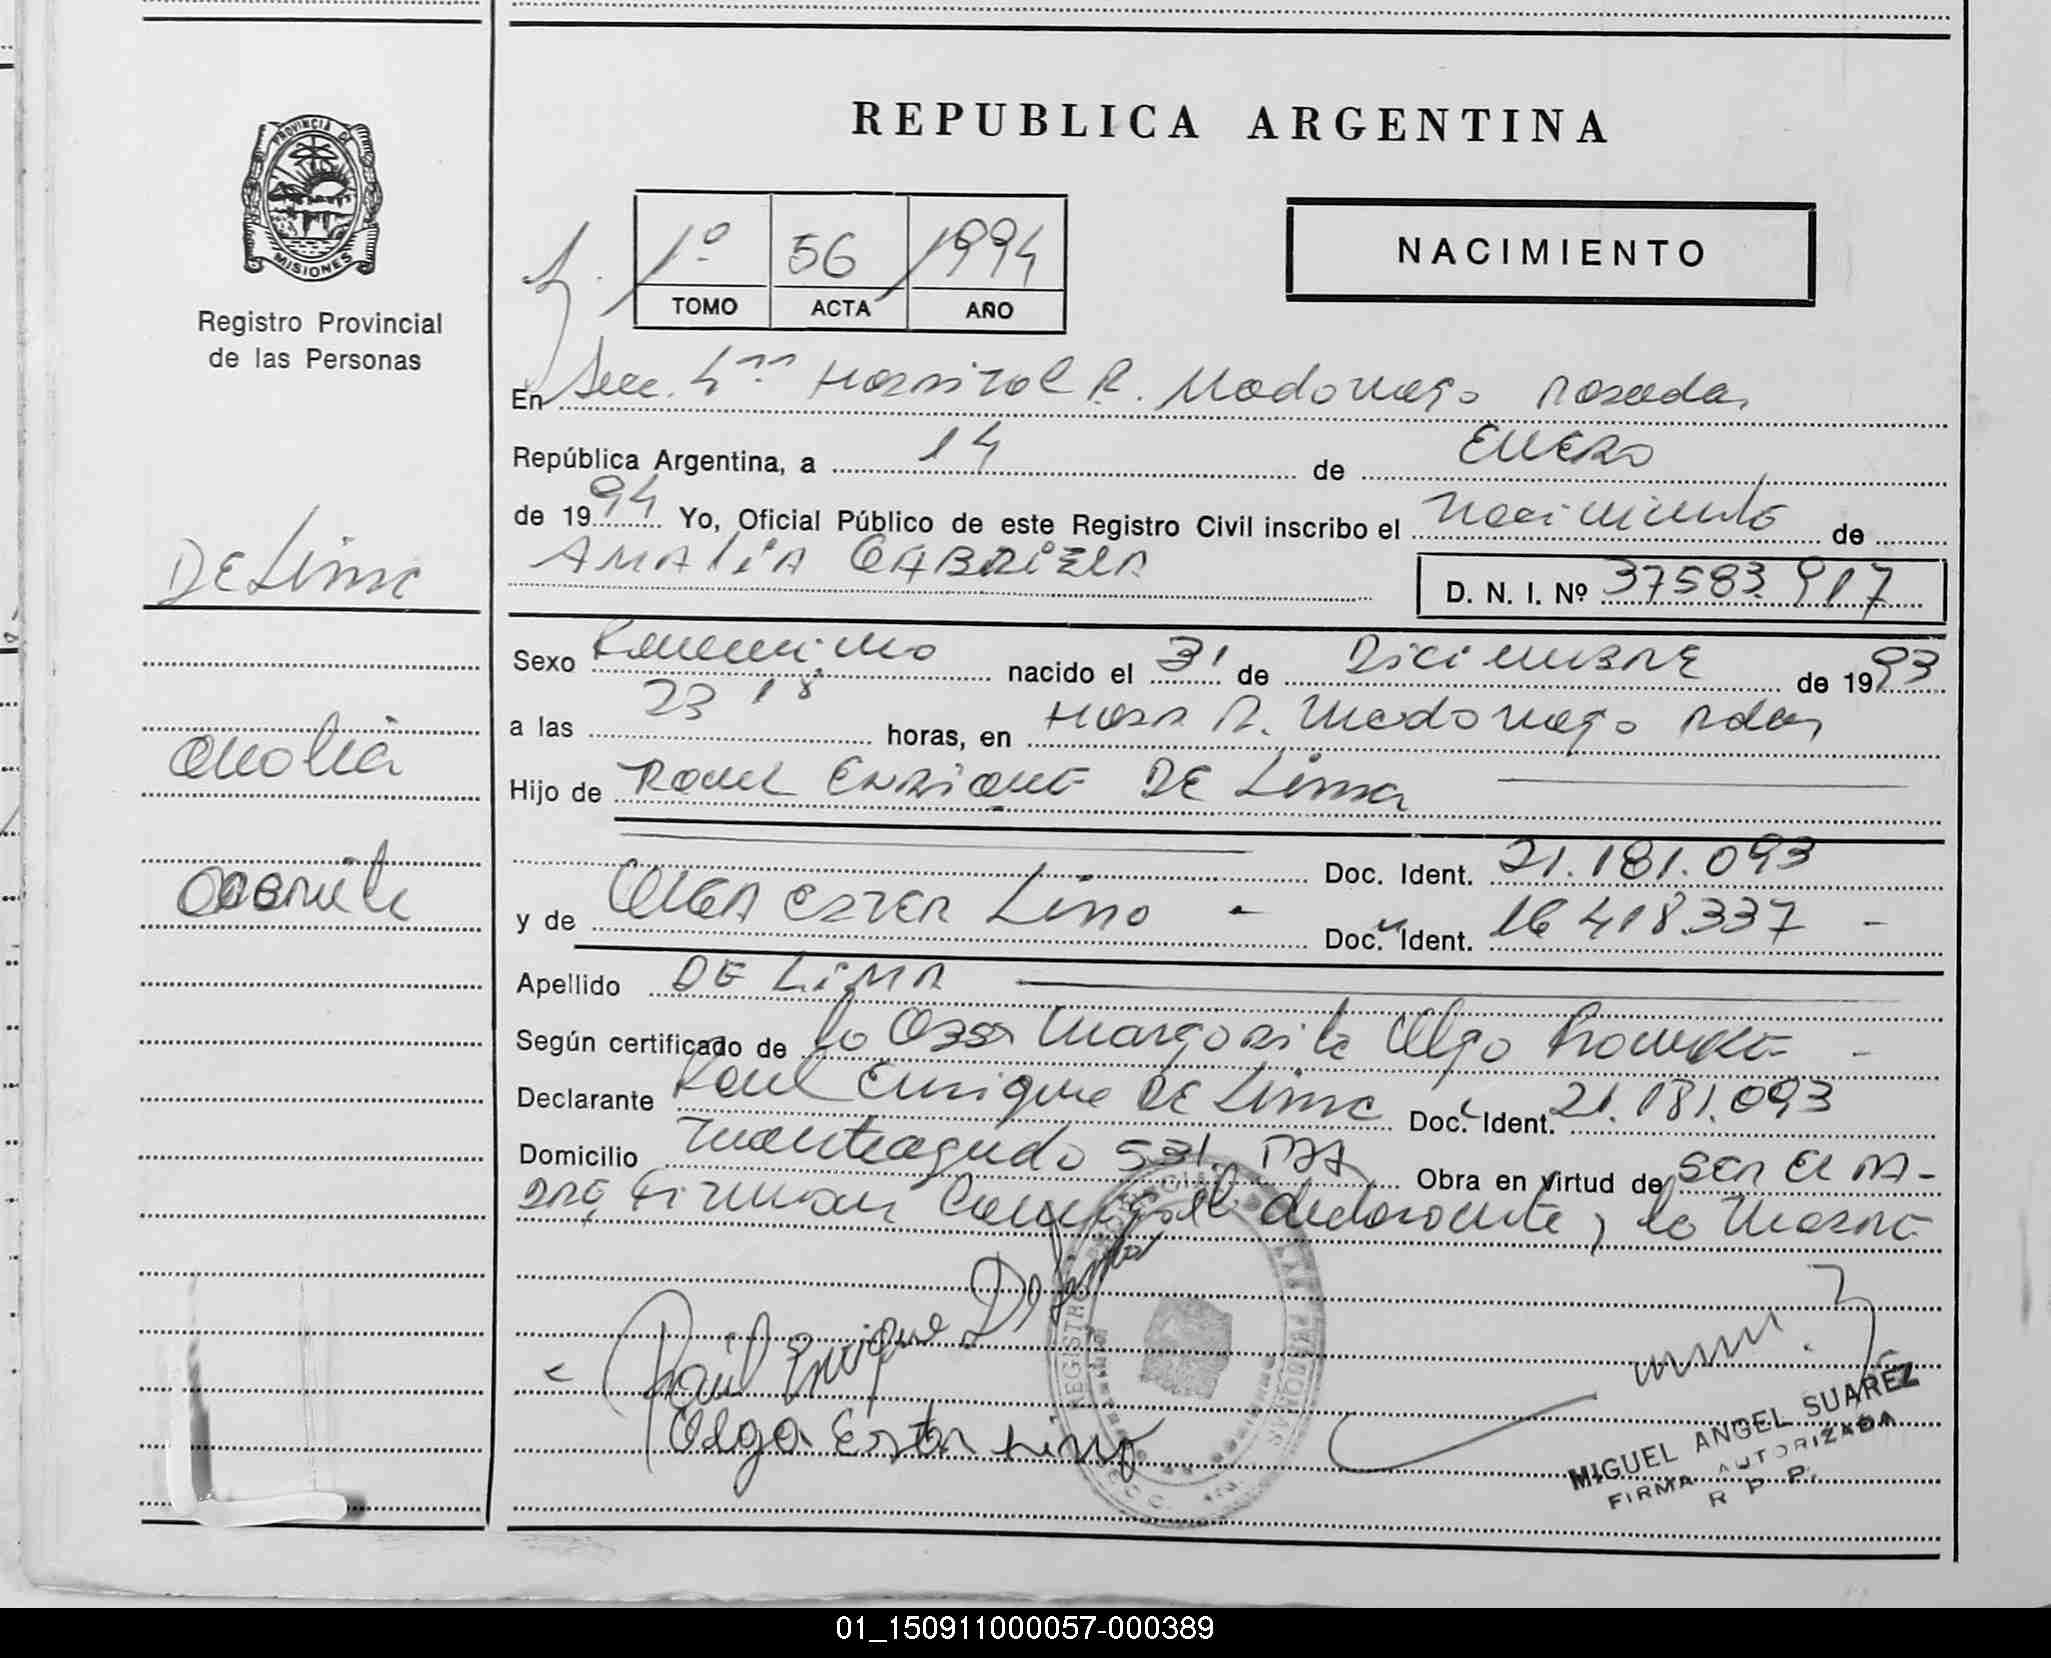 REPUBLICA ARGENTINA
PROVINCIA DE
MISIONES
Registro Provincial
de las Personas
1º 56 1994
TOMO ACTA AÑO
NACIMIENTO
En Secc. 4ª Hospital R. Madariaga Posadas
República Argentina, a 14 de ENERO
de 1994 Yo, Oficial Público de este Registro Civil inscribo el Nacimiento de
AMALIA GABRIELA
D. N. I. Nº 37583.917
De Lima
Amalia
Gabriela
Sexo Femenino nacido el 31 de Diciembre de 1993
a las 23 18 horas, en Hosp R. Madariaga Pdas
Hijo de Raul ENRIQUE DE Lima
Doc. Ident. 21.181.093
y de OLGA ESTER Lino - Doc. Ident. 16 418.337 -
Apellido DE LIMA
Según certificado de la Obst Margarita Olga -
Declarante Raul Enrique DE Lima Doc. Ident. 21.181.093
Domicilio Monteagudo 531. Obra en virtud de SER El PA-
DRE Firman el declarante y la Madre
Raúl Enrique De Lima
Olga Ester Lino
REGISTRO PROVINCIAL DE LAS PERSONAS
MIGUEL ANGEL SUAREZ
FIRMA AUTORIZADA
R. P. P.
01_150911000057-000389